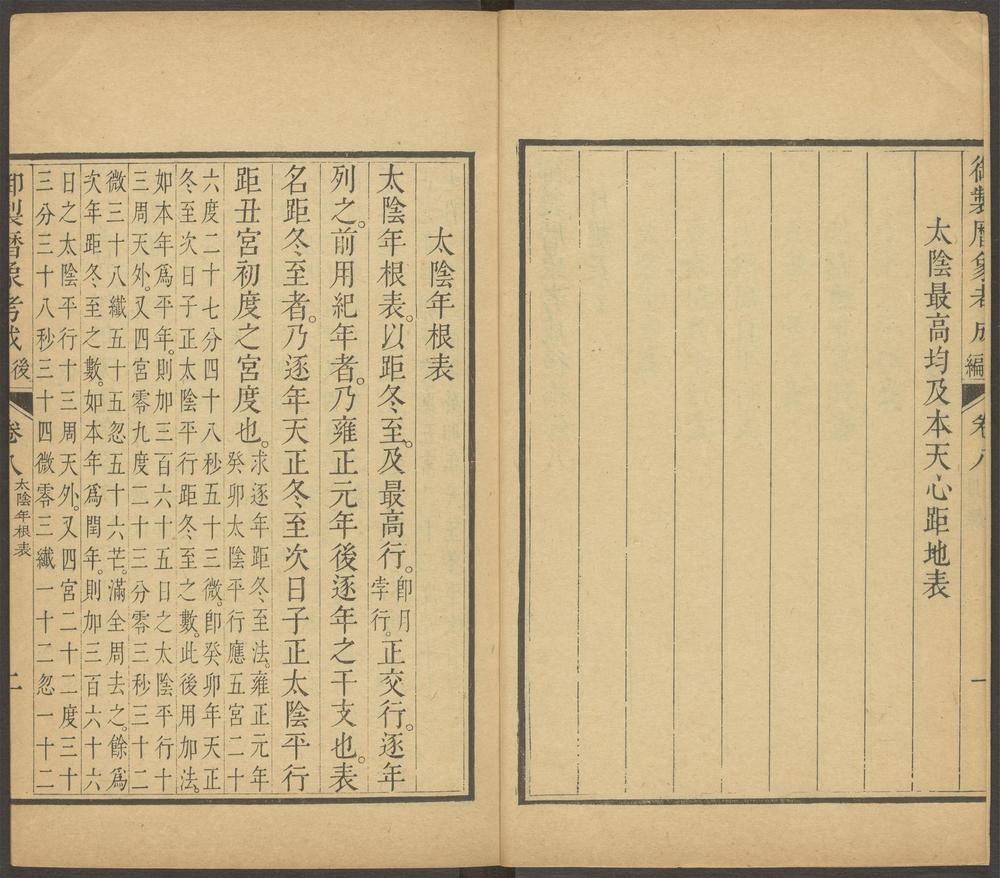 御製曆象考成後編 卷八 一
太陰最高均及本天心距地表
太陰年根表
太陰年根表。以距冬至。及最高行。即月孛行。正交行。逐年
列之。前用紀年者。乃雍正元年後逐年之干支也。表
名距冬至者。乃逐年天正冬至次日子正太陰平行
距丑宮初度之宮度也。求逐年距冬至法。雍正元年
癸卯太陰平行應五宮二十
六度二十七分四十八秒五十三微。即癸卯年天正
冬至次日子正太陰平行距冬至之數。此後用加法。
如本年為平年。則加三百六十五日之太陰平行十
三周天外。又四宮零九度二十三分零三秒三十二
微三十八纖五十五忽五十六芒。滿全周去之。餘為
次年距冬至之數。如本年為閏年。則加三百六十六
日之太陰平行十三周天外。又四宮二十二度三十
三分三十八秒三十四微零三纖一十二忽一十二
御製曆象考成後 卷八 太陰年根表 二